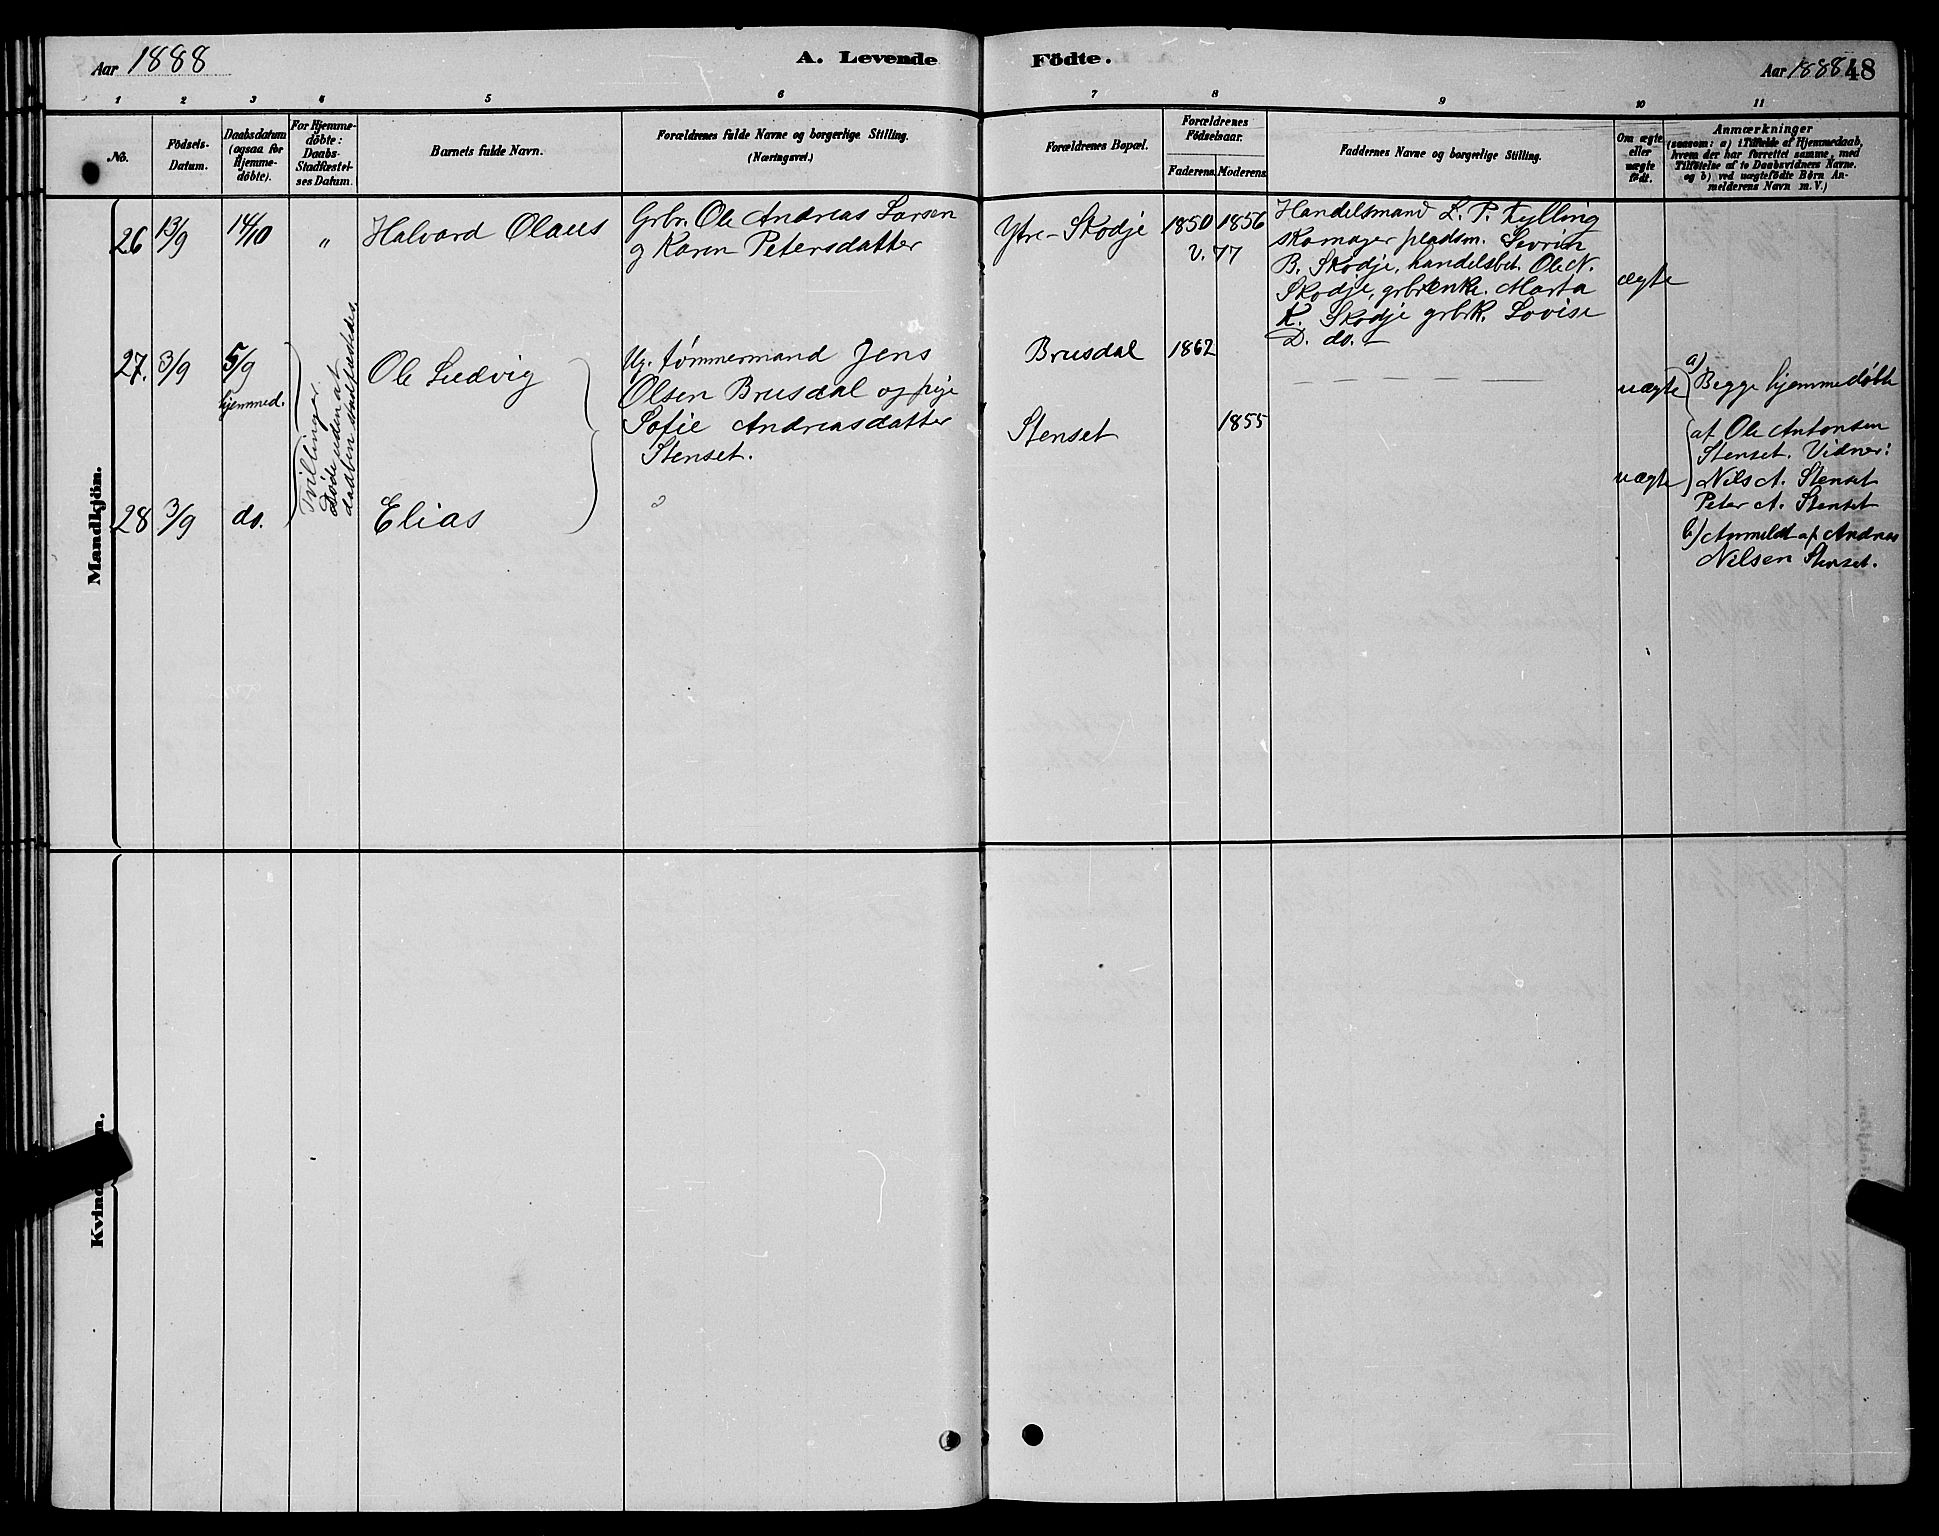 Aar 1888
A. Levende
Födte.
Aar 1888
48
1 2 3 4 5 6 7 8 9 10 11
No.
Födsels-
Datum.
Daabsdatum
(ogsaa for
Hjemme-
döbte).
For Hjemme-
döbte:
Daabs-
Stadfæstel-
ses Datum.
Barnets fulde Navn.
Forældrenes fulde Navne og borgerlige Stilling.
(Næringsvei.)
Forældrenes Bopæl.
Forældrenes
Födselsaar.
Faderens. Moderens.
Faddernes Navne og borgerlige Stilling.
Om ægte
eller
uægte
födt.
Anmærkninger
(saasom: a) i Tilfælde af Hjemmedaab,
hvem der har forrettet samme, med
Tilföielse af to Daabsvidners Navne.
og b) ved uægtefödte Börn An-
melderens Navn m. V.)
Mandkjön.
26 13/9 14/10 " Halvard Olaus
Grbr. Ole Andreas Larsen
og Karen Petersdatter
Ytre-Skodje 1850 1856
v. 77
Handelsmand L. P. Kylling
skomager pladsm. Sevrin
B. Skodje, handelsbet. Ole N.
Skodje, grbrenke. Marta
K. Skodje grbrk. Lovise
D. do.
ægte
27. 3/9 5/9
hjemmed.
Tvillinger.
Døde uden at
daaben stadfæstedes
Ole Ludvig
Ug. tømmermand Jens
Olsen Brusdal og pige
Sofie Andreasdatter
Stenset.
Brusdal 1862
Stenset 1855
uægte
uægte
a) Begge hjemmedøbte
af Ole Antonsen
Stenset. Vidner:
Nils A. Stenset
Peter A. Stenset
b) Anmeldt af Andreas
Nilsen Stenset.
28 3/9 do. Elias